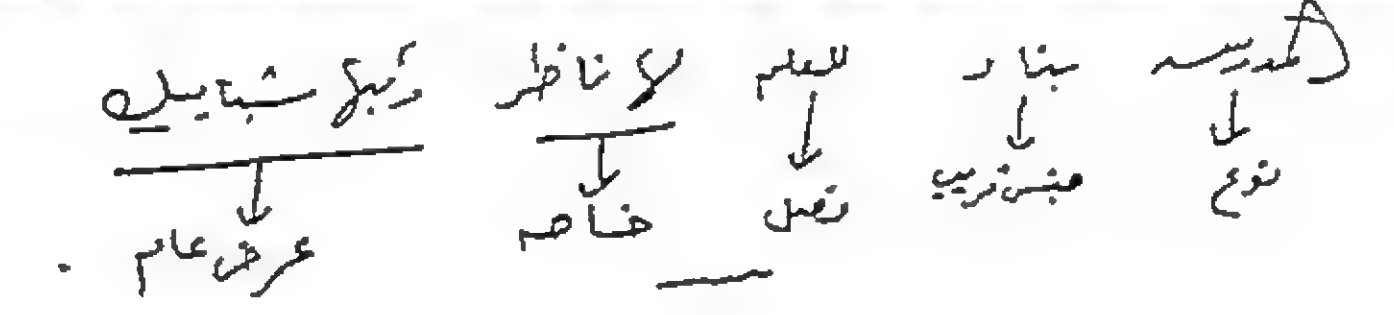 المدرسه بناء للعلم لها ناظر وبها شبابيك
نوع جنس قريب فصل خاصه عرض عام .